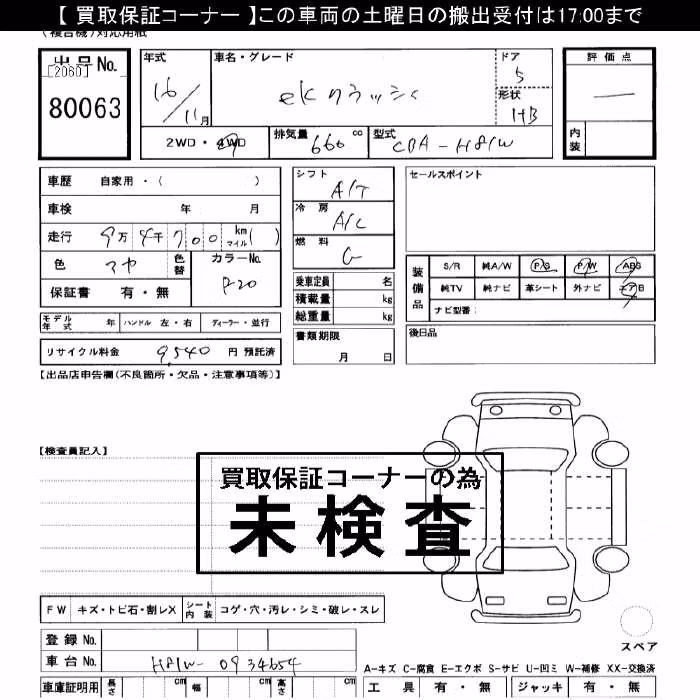 【 買取保証コーナー 】この車両の土曜日の搬出受付は17:00まで
(複合機)対応用紙
出品No.
[2060]
80063
年式
16/11月
車名・グレード
eKクラッシィ
ドア
5
形状
HB
2WD・4WD
排気量 660 cc
型式 CBA-H81W
評価点
—
内装
車歴 自家用・( )
車検 年 月
走行 9万4千700 km マイル ( )
色
色替
カラーNo.
P20
保証書 有・無
モデル年式 年 ハンドル 左・右 ディーラー・並行
リサイクル料金 9,540 円 預託済
シフト
A/T
冷房
A/C
燃料
G
乗車定員 名
積載量 kg
総重量 kg
書類期限
月 日
セールスポイント
装備品
S/R 純A/W P/S P/W ABS
純TV 純ナビ 革シート 外ナビ エアB
ナビ型番:
後日品
【出品店申告欄(不良箇所・欠品・注意事項等)】
【検査員記入】
買取保証コーナーの為
未検査
FW キズ・トビ石・割レX シート内装 コゲ・穴・汚レ・シミ・破レ・スレ
登録 No.
車台 No. H81W-0934654
車庫証明用 長さ cm 幅 cm 高さ cm
スペア
A-キズ C-腐食 E-エクボ S-サビ U-凹ミ W-補修 XX-交換済
工具 有・無 ジャッキ 有・無